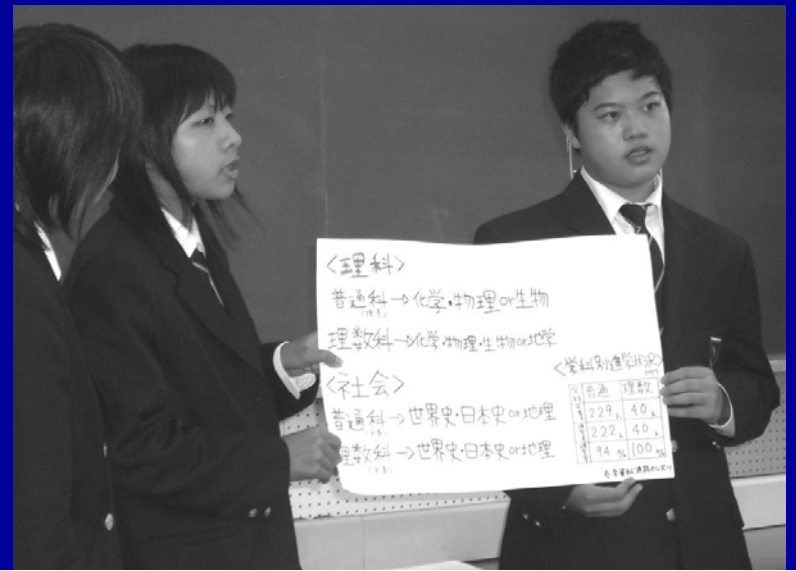 <理科>
普通科→化学・物理or生物
理数科→化学・物理・生物or地学
<社会>
普通科→世界史・日本史or地理
理数科→世界史・日本史or地理
<学科別進学状況>
普通 理数
229人 40人
222人 40人
94% 100%